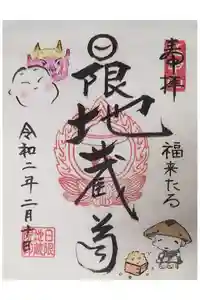 奉拝
福来たる
日限地蔵尊
令和二年二月